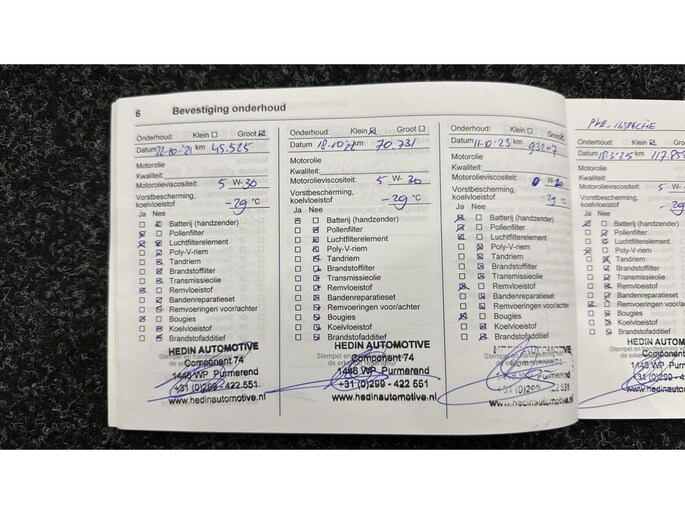 6 Bevestiging onderhoud
Onderhoud: Klein Groot
Datum 22-10-'21 km 45.525
Motorolie
Kwaliteit:
Motorolieviscositeit: 5 W-30
Vorstbescherming,
koelvloeistof -29 °C
Ja Nee
Batterij (handzender)
Pollenfilter
Luchtfilterelement
Poly-V-riem
Tandriem
Brandstoffilter
Transmissieolie
Remvloeistof
Bandenreparatieset
Remvoeringen voor/achter
Bougies
Koelvloeistof
Brandstofadditief
HEDIN AUTOMOTIVE
Component 74
1446 WP Purmerend
+31 (0)299 - 422 551
www.hedinautomotive.nl
Onderhoud: Klein Groot
Datum km 70.731
Motorolie
Kwaliteit:
Motorolieviscositeit: 5 W-30
Vorstbescherming,
koelvloeistof -29 °C
Ja Nee
Batterij (handzender)
Pollenfilter
Luchtfilterelement
Poly-V-riem
Tandriem
Brandstoffilter
Transmissieolie
Remvloeistof
Bandenreparatieset
Remvoeringen voor/achter
Bougies
Koelvloeistof
Brandstofadditief
HEDIN AUTOMOTIVE
Component 74
1446 WP Purmerend
+31 (0)299 - 422 551
www.hedinautomotive.nl
Onderhoud: Klein Groot
Datum 11-10-'23 km
Motorolie
Kwaliteit:
Motorolieviscositeit: W-30
Vorstbescherming,
koelvloeistof -29 °C
Ja Nee
Batterij (handzender)
Pollenfilter
Luchtfilterelement
Poly-V-riem
Tandriem
Brandstoffilter
Transmissieolie
Remvloeistof
Bandenreparatieset
Remvoeringen voor/achter
Bougies
Koelvloeistof
Brandstofadditief
HEDIN AUTOMOTIVE
Component 74
Purmerend
+31 (0)299 551
www.hedinautomotive.nl
Datum km
Motorolie
Kwaliteit:
Motorolieviscositeit: 5
Vorstbescherming,
koelvloeistof -29
Ja Nee
Batterij (handzender)
Pollenfilter
Luchtfilterelement
Poly-V-riem
Tandriem
Brandstoffilter
Transmissieolie
Remvloeistof
Bandenreparatieset
Remvoeringen voor/achter
Bougies
Koelvloeistof
Brandstofadditief
HEDIN AUTOM
Component
1446 WP Purme
+31 (0)299 - 4
www.hedinautom